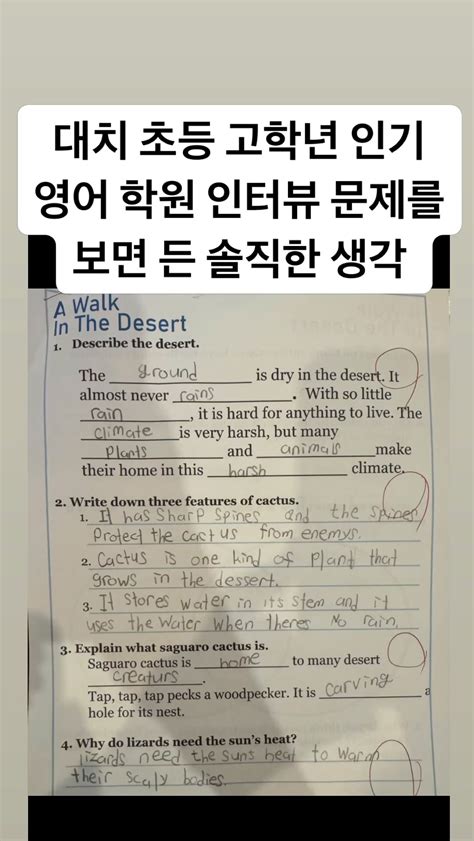 대치 초등 고학년 인기
영어 학원 인터뷰 문제를
보면 든 솔직한 생각
A Walk
In The Desert
1. Describe the desert.
The ground is dry in the desert. It
almost never rains. With so little
rain, it is hard for anything to live. The
climate is very harsh, but many
plants and animals make
their home in this harsh climate.
2. Write down three features of cactus.
1. It has Sharp spines and the spines
Protect the cactus from enemys.
2. Cactus is one kind of plant that
grows in the dessert.
3. It stores water in its stem and it
uses the water when theres No rain.
3. Explain what saguaro cactus is.
Saguaro cactus is home to many desert
creaturs.
Tap, tap, tap pecks a woodpecker. It is carving a
hole for its nest.
4. Why do lizards need the sun's heat?
lizards need the suns heat to warm
their scaly bodies.